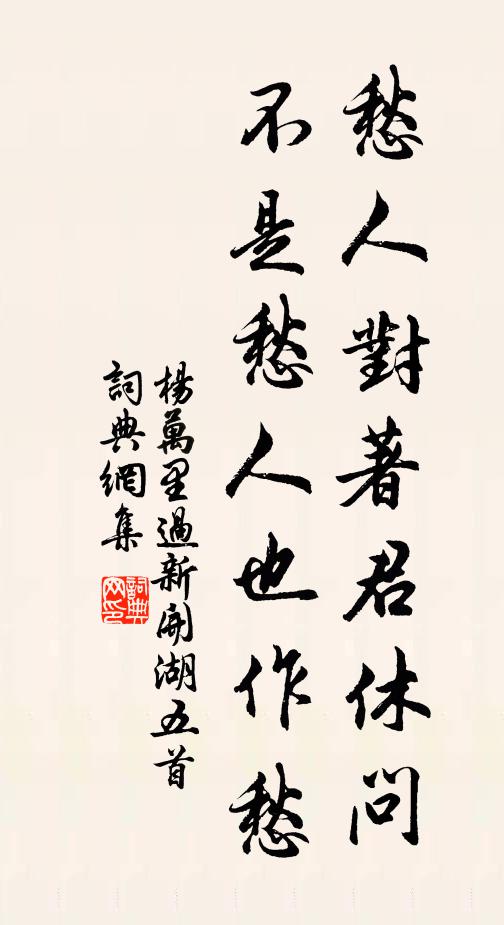 愁人對著君休問
不是愁人也作愁
楊萬里過新開湖五首
詞典網集
詞典網印